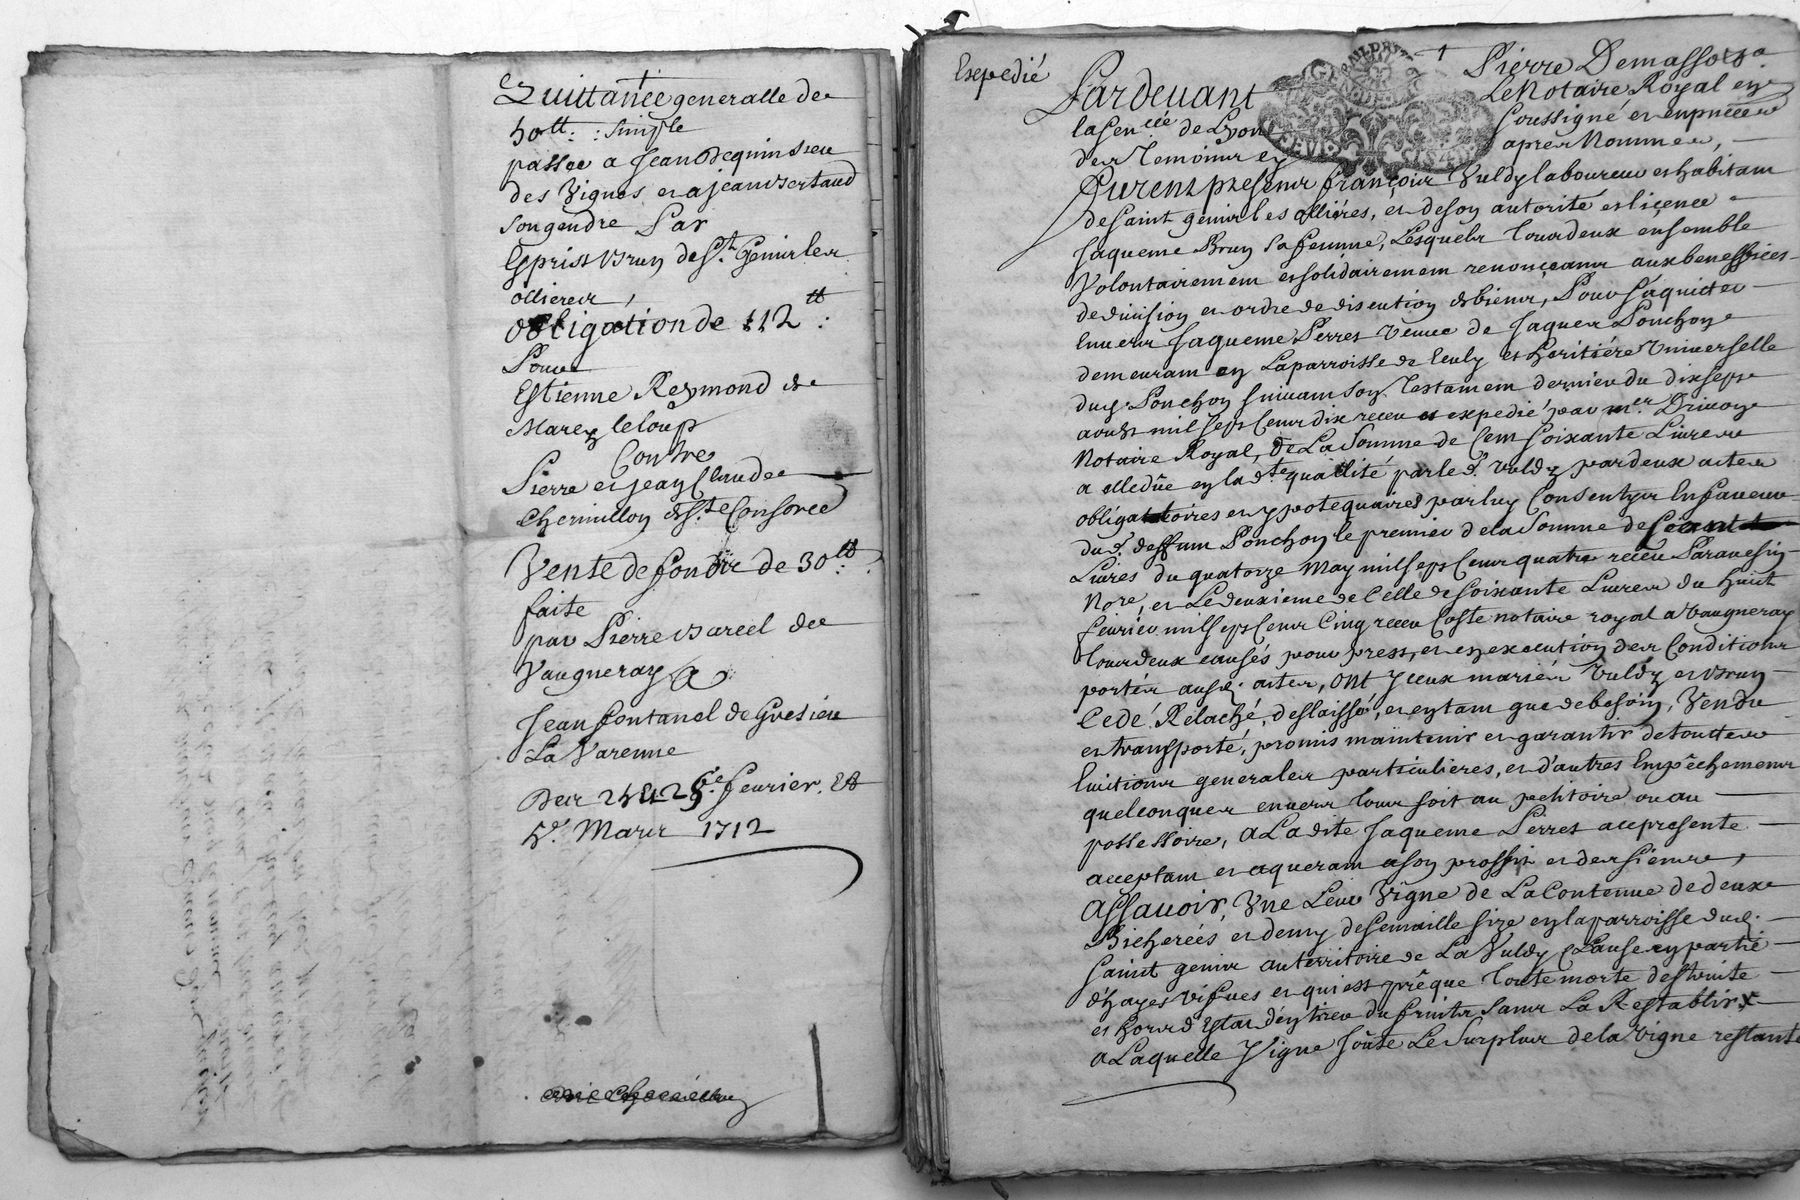 Quittance generalle de
50tt: simple
passee a Jean Dequinsieu
des Vignes et a jean Bertaud
son gendre Par
Esprist Brun de St. Genis les
ollieres,
obligation de 112tt:
Pour
Estienne Reymond de
Marcy le loup
Contre
Pierre et jean Claude
Chermillon et Ste Consorce
Vente de fondz de 30tt:
faite
par Pierre Barcel de
Vaugneray A
Jean fontanel de Gresieu
La Varenne
Des 25 et 28e feurier. Et
5e. Mars 1712
Expedié
Pardeuant Pierre Demassois
Le Notaire Royal en
la Senccée de Lyon Soussigné et en pnce
des Temoins cy apres Nommes,
Furent presens françois Vuldy laboureur et habitant
de Saint genis les ollieres, et de son autorité et licence
Jaqueme Brun sa femme, Lesquels tous deux ensemble
Volontairement et solidairement renonçeans aux beneffices
de diuision et ordre de discution de biens, Pour saquitter
Enuers Jaqueme Perres veuue de Jaques Ponchon
demeurant en La parroisse de et heritiére Vniverselle
dud. Ponchon suiuant son Testament dernier du dixsept
aoust mil sept cent dix receu et expedié par mer.
Notaire Royal, De La Somme de Cent soixante Liures
a elle dûe en lad.te quallité par led. vuldy par deux actes
obligattoires et ypotequaires par luy Consentys En faueur
dud. deffunt Ponchon le premier de la Somme de Cent
Liures du quatorze May mil sept Cent quatre receu
Nore, et Le deuxieme de Celle de soixante Liures du huit
feurier mil sept Cent Cinq receu Coste notaire royal a Vaugneray
tous deux causés pour prest, et en execution des Conditions
portés ausd. actes, ont yceux mariés Vuldy et Brun
Cedé. Relaché, deslaissé, et en tant que de besoin, Vendu
et transporté, promis maintenir et garantir de touttes
Euictions generales particulieres, et d'autres Empêchemens
quelconques enuers tous soit au petitoire ou au
possessoire, A La dite Jaqueme Perres acy presente
acceptant et aquerant a son proffit et des siens,
Assauoir, Vne Leur Vigne de La Contenue de deux
Bicherées et demy de semaille size en la parroisse dud.
Saint genis au territoire de La Vuldy Clause en partie
d'hayes vifues et qui est presque toute morte destruite
et hors d'Estat d'en tirer du fruits sans La Restablir
A Laquelle Vigne Joûte Le Surplus de la vigne restante